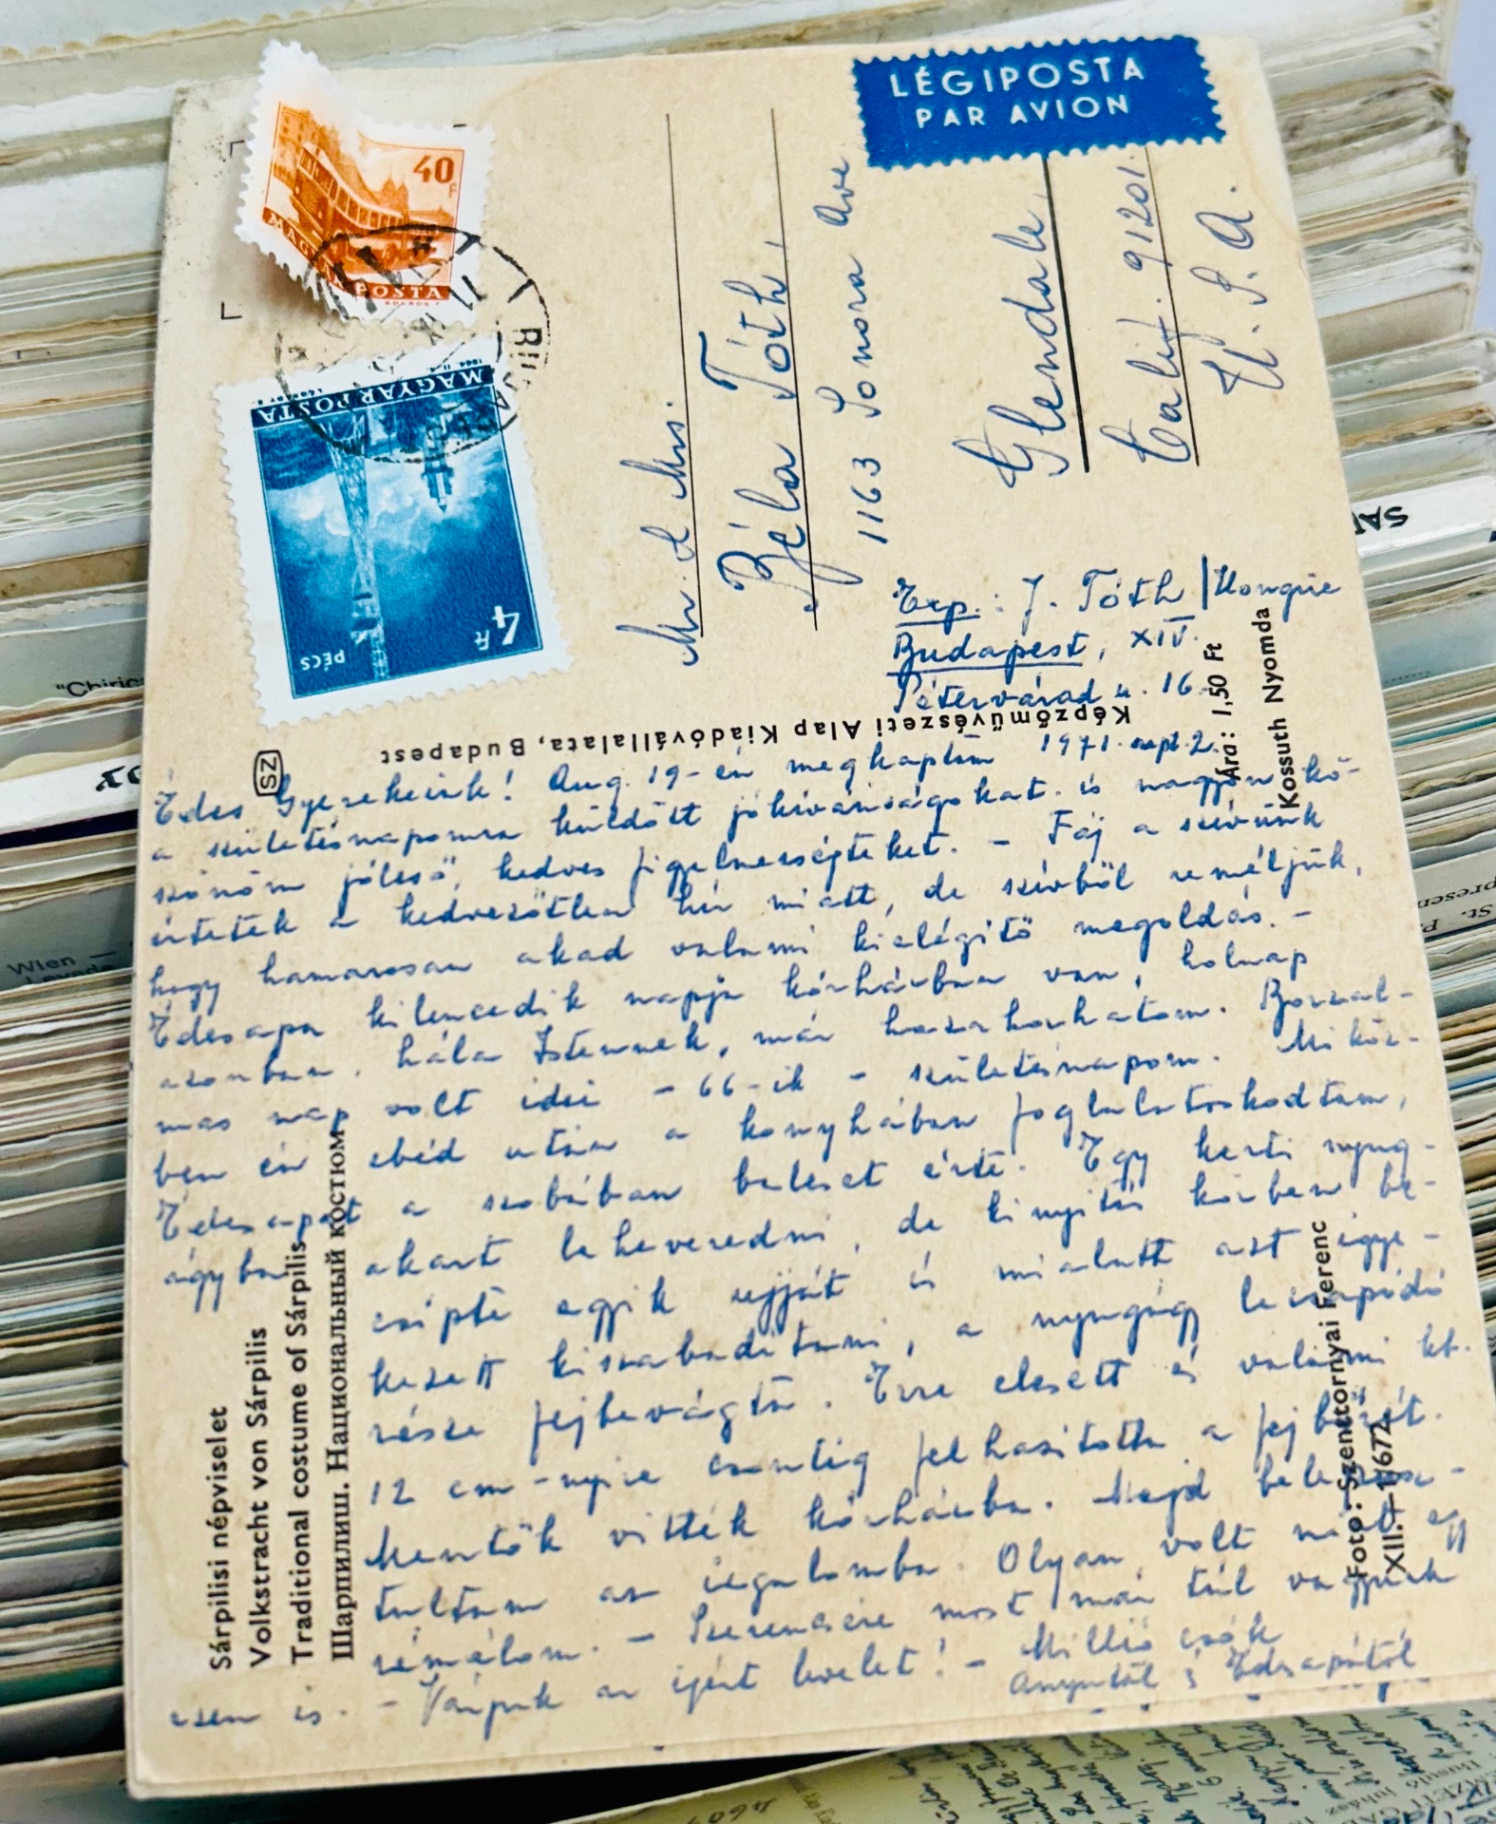 LÉGIPOSTA
PAR AVION
40 F
MAGYAR POSTA
MAGYAR POSTA
4 Ft
PÉCS
Mr. & Mrs.
Béla Tóth
1163 Sonora Ave
Glendale
Calif. 91201.
U. S. A.
Exp.: J. Tóth / Hongrie
Budapest, XIV.
Pétervárad u. 16.
SZ
Képzőművészeti Alap Kiadóvállalata, Budapest
Ára: 1,50 Ft
Kossuth Nyomda
1971. sept. 2.
Édes Gyerekeink! Aug. 19-én megkaptam
a születésnapomra küldött jókívánságokat és nagyon kö-
szönöm jóleső, kedves figyelmességteket. - Fáj a szívünk
értetek a kedvezőtlen hír miatt, de szívből reméljük,
hogy hamarosan akad valami kielégítő megoldás. -
Édesapa kilencedik napja kórházban van, holnap
azonban, hála Istennek, már hazahozhatom. Borzal-
mas nap volt idei - 66-ik - születésnapom. Miköz-
ben én ebéd után a konyhában foglalatoskodtam,
Édesapát a szobában baleset érte. Egy kerti nyug-
ágyban akart leheveredni, de kinyitás közben be-
csípte egyik ujját és mialatt azt igye-
kezett kiszabadítani, a nyugágy lecsapódó
része fejbevágta. Erre elesett és valami kb.
12 cm-nyire csontig felhasította a fejbőrét.
Mentők vitték kórházba. Majd belepusz-
tultam az izgalomba. Olyan volt mint egy
rémálom. - Szerencsére most már túl vagyunk
ezen is. - Várjuk az ígért levelet! - Millió csók
Anyutól s Édesapától
Sárpilisi népviselet
Volkstracht von Sárpilis
Traditional costume of Sárpilis
Шарпилиш. Национальный костюм
Foto: Szentornyai Ferenc
"Chiric
Wien —
St. P